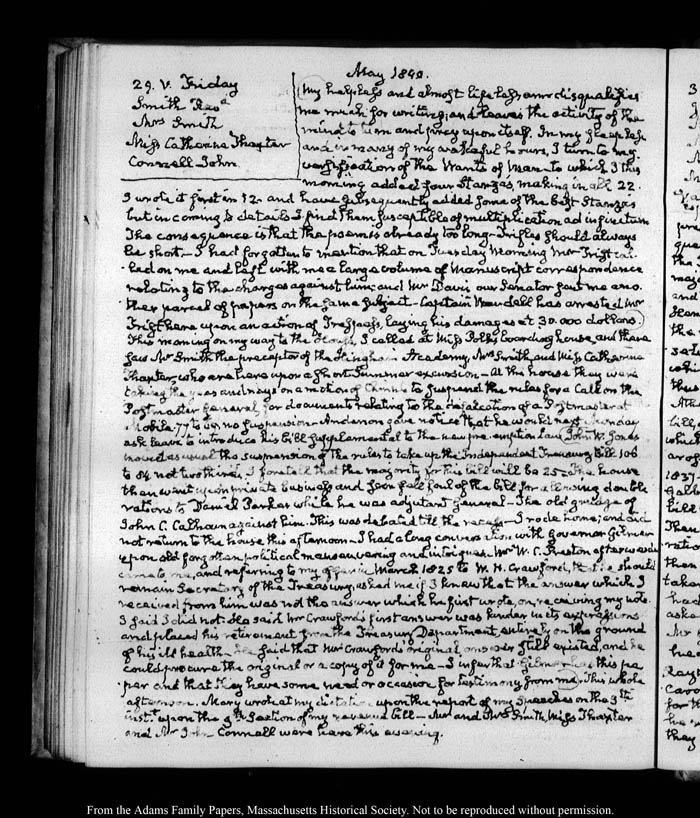 May 1840.
29. V. Friday
Smith Revd
Mrs Smith
Miss Catharine Thaxter
Connell John
My helpless and almost lifeless arm disqualifies
me much for writing, and leaves the activity of the
mind to turn and prey upon itself. In my sleepless
and in many of my wakeful hours, I turn to my
versification of the Wants of Man to which I this
morning added four Stanzas, making in all 22.
I wrote it first in 12. and have subsequently added some of the best Stanzas
but in coming to details I find them susceptible of multiplication ad infinitum
The consequence is that the poem is already too long. Trifles should always
be short. I had forgotten to mention that on Tuesday Morning Mr Fright cal-
led on me and left with me a large volume of Manuscript correspondence
relating to the charges against him; and Mr Davis our Senator sent me ano-
ther parcel of papers on the same subject. Captain Wendell has arrested Mr
here upon an action of Trespass, laying his damages at 30.000 dollars.
This morning on my way to the House, I called at Miss Polk's boarding house, and there
saw Mr Smith the preceptor of the Hingham Academy, Mrs Smith, and Miss Catharine
Thaxter, who are here upon a short Summer excursion. At the house they were
taking the yeas and nays on a motion of to suspend the rules for a Call on the
Postmaster General, for documents relating to the defalcation of a Postmaster at
Mobile. 77 to no suspension. Anderson gave notice that he would next Monday
ask leave to introduce his bill supplemental to the new pre-emption Law. John W. Jones
moved as usual the suspension of the rules to take up the Independent Treasury Bill 106
to 84 not two thirds. I foretell that the majority for this bill will be 25. The house
then went upon private business and soon fell foul of the bill for allowing double
rations to Daniel Parker while he was adjutant General. The old grudge of
John C. Calhoun against him. This was debated till the recess. I rode home; and did
not return to the house this afternoon. I had a long conversation with Governor Gilmer
upon old forgotten political manoeuvering and intrigues. Mr W. C. Preston afterwards
came to me, and referring to my offer in March 1825 to W. H. Crawford, that he should
remain Secretary of the Treasury, asked me if I knew that the answer which I
received from him was not the answer which he first wrote, on receiving my note.
I said I did not. He said Mr Crawford's first answer was kinder in its expressions
and placed his retirement from the Treasury Department, entirely on the ground
of his ill health. He said that Mr Crawford's original answer still existed, and he
could procure the original or a copy of it for me. I infer that Gilmer has this pa-
per and that they have some need or occasion for testimony from me. This whole
afternoon, Mary wrote at my dictation upon the report of my Speeches on the 3th
inst. upon the 9th Section of my revenue bill. Mr and Mrs Smith, Miss Thaxter
and Mr John Connell were here this evening.
From the Adams Family Papers, Massachusetts Historical Society. Not to be reproduced without permission.